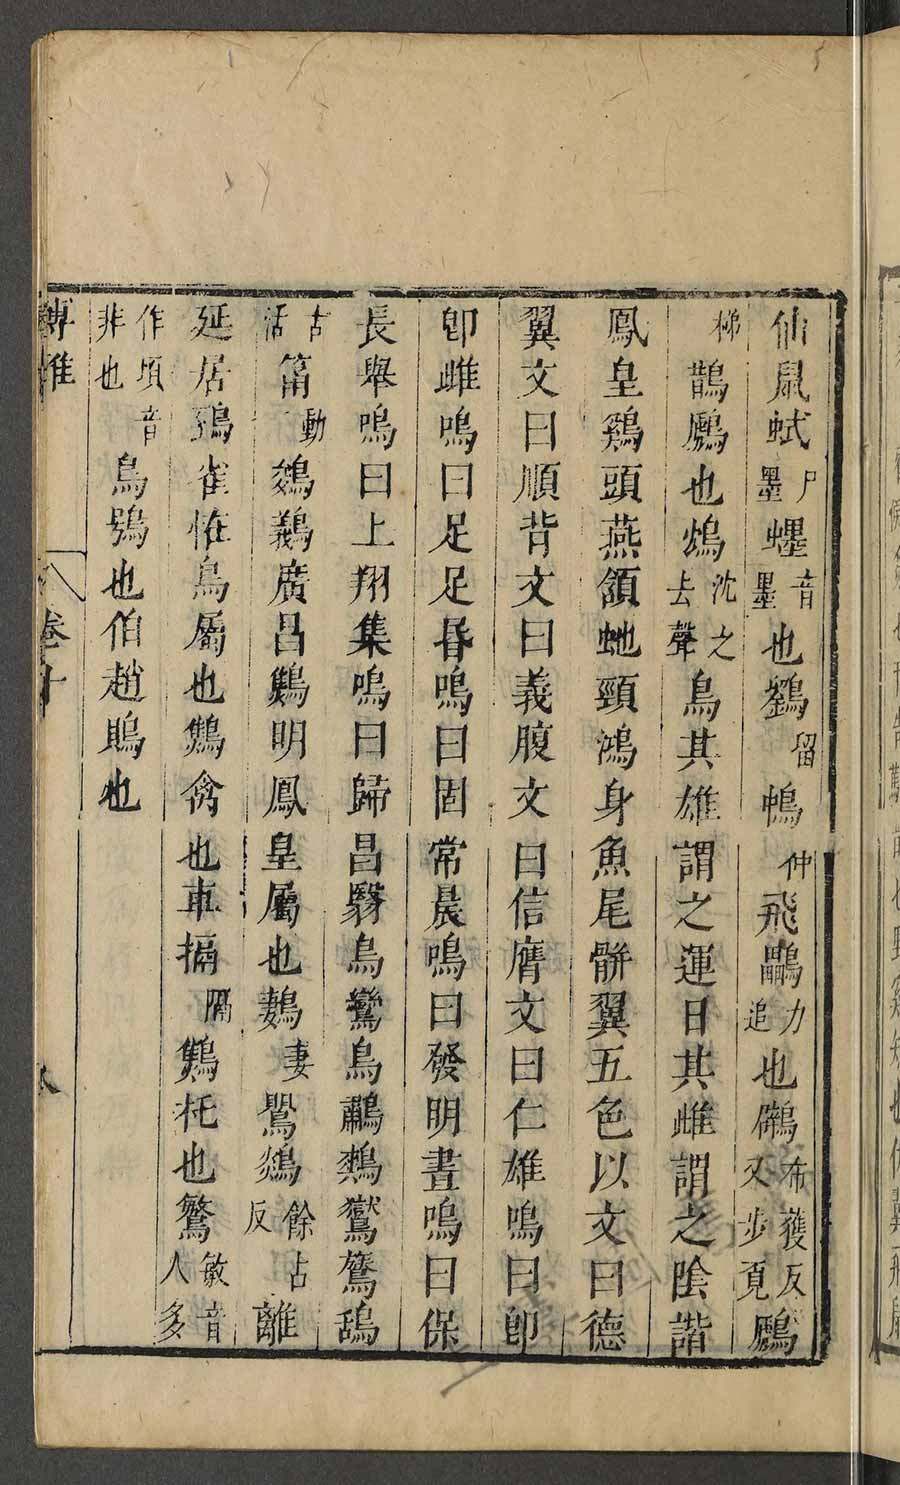 仙鼠蚮尸墨䘃音墨也鶹留鴨仲飛鸓力追也鷿布獲反又步覓鷉
梯鶻鷉也鴆沈之去聲鳥其雄謂之運日其雌謂之陰諧
鳳皇鷄頭燕頷虵頸鴻身魚尾骿翼五色以文曰德
翼文曰順背文曰義腹文曰信膺文曰仁雄鳴曰卽
卽雌鳴曰足足昏鳴曰固常晨鳴曰發明晝鳴曰保
長舉鳴曰上翔集鳴曰歸昌翳鳥鸞鳥鷫鷞鸑鷟鴰
古活筩動鵕鸃廣昌鷦明鳳皇屬也鶈妻鸎鵕餘占反離
延居鵎雀恠鳥屬也鷦禽也車搹隔鷦杔也鷔敏音人多
作頃音非也鳥鴞也伯趙鵙也
博雅 卷十 八